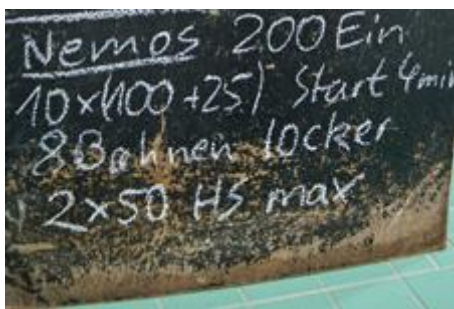 Nemos 200 Ein
10x(100+25) Start 4min
8 Bahnen locker
2x50 HS max